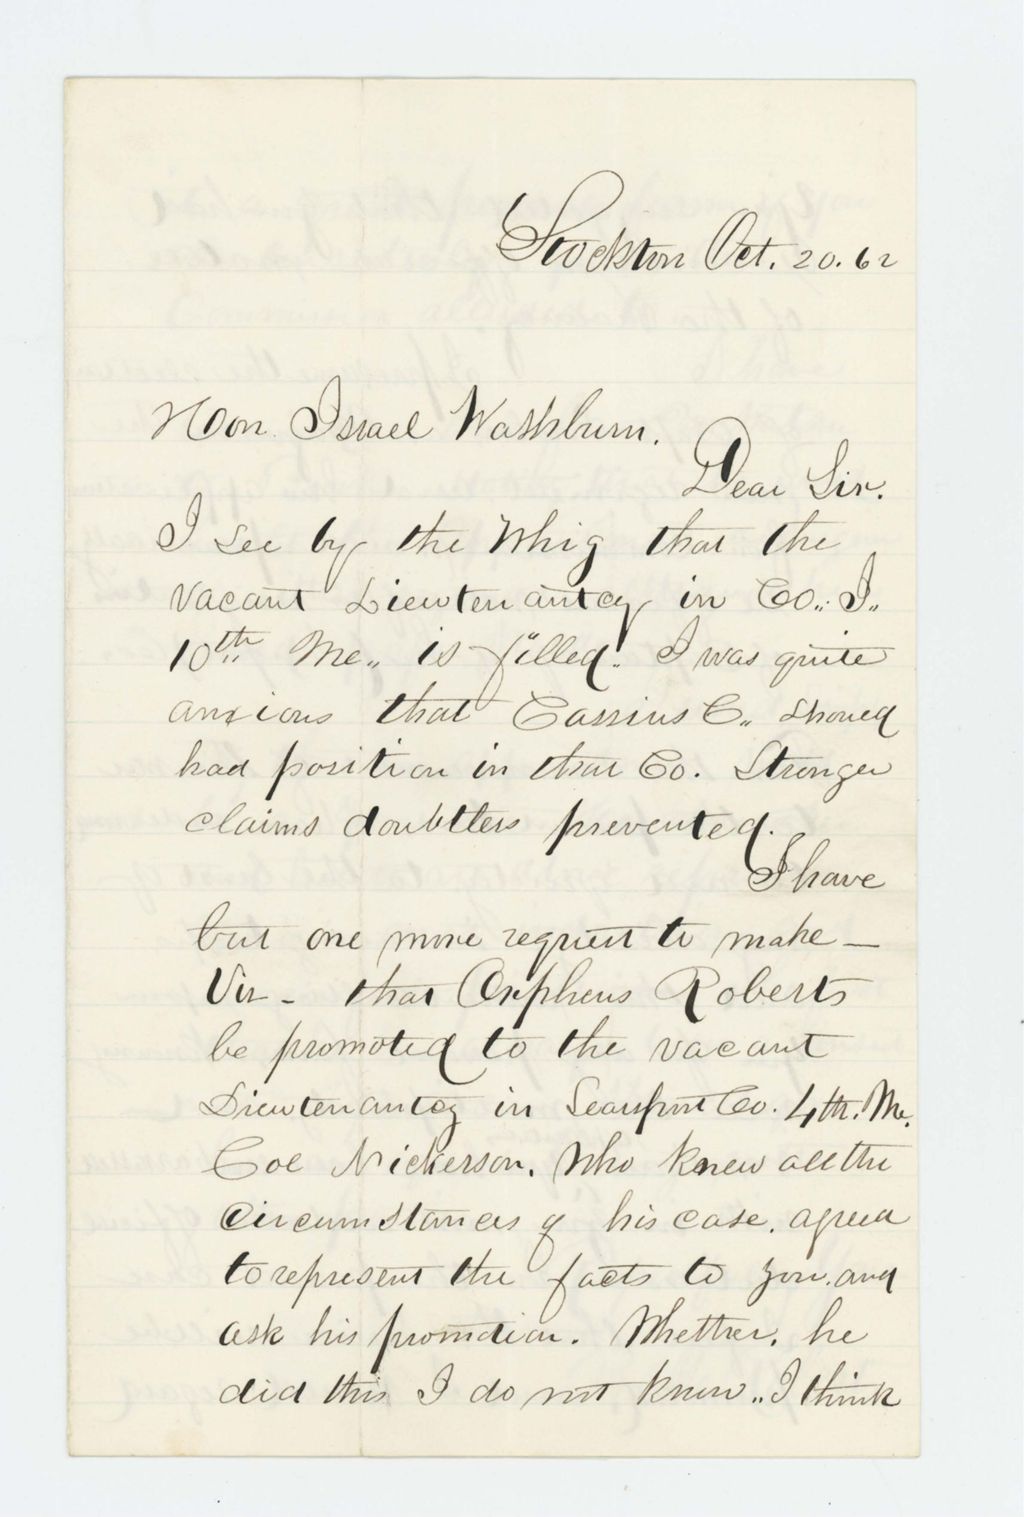 Stockton Oct. 20. 62
Hon. Israel Washburn.
Dear Sir.
I see by the Whig that the
vacant Lieutenantcy in Co. I.
10th Me. is filled. I was quite
anxious that Cassius C. should
had position in that Co. Stronger
claims doubtless prevented.
I have
but one more request to make —
Viz - that Orpheus Roberts
be promoted to the vacant
Lieutenantcy in Searsport Co. 4th. Me.
Col Nickerson. Who knew all the
circumstances of his case. agreed
to represent the facts to you. and
ask his promotion. Whether, he
did this I do not know. I think